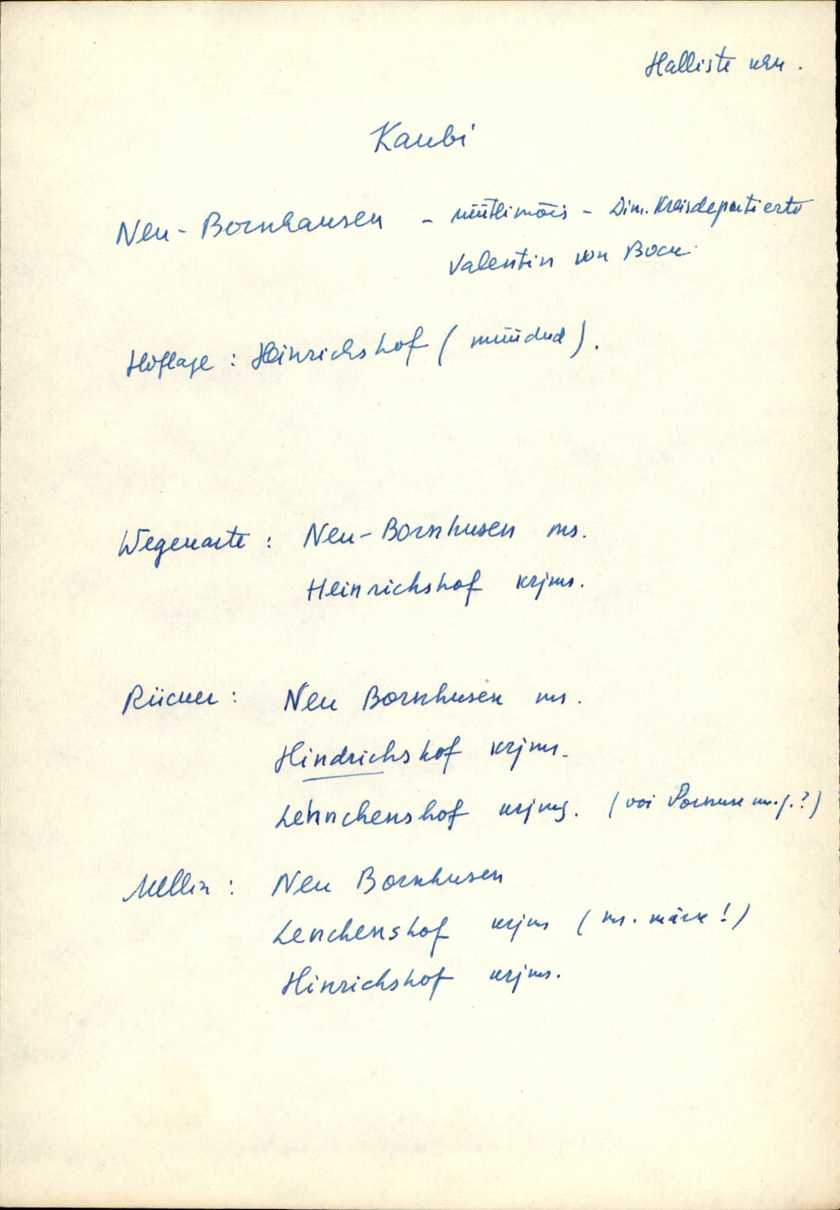 Halliste khk.
Kaubi
Neu-Bornhausen - rüütlimõis - Dim. Kreisdeputierte
Valentin von Bock
Hoflage: Heinrichshof (müüdud).
Wegenkarte: Neu-Bornhusen ms.
Heinrichshof krjms.
Rücker: Neu Bornhusen ms.
Hindrichshof krjms.
Lehnchenshof krjms. (või Pornuse m.j.?)
Mellin: Neu Bornhusen
Lenchenshof krjms (ms. märk!)
Hinrichshof krjms.